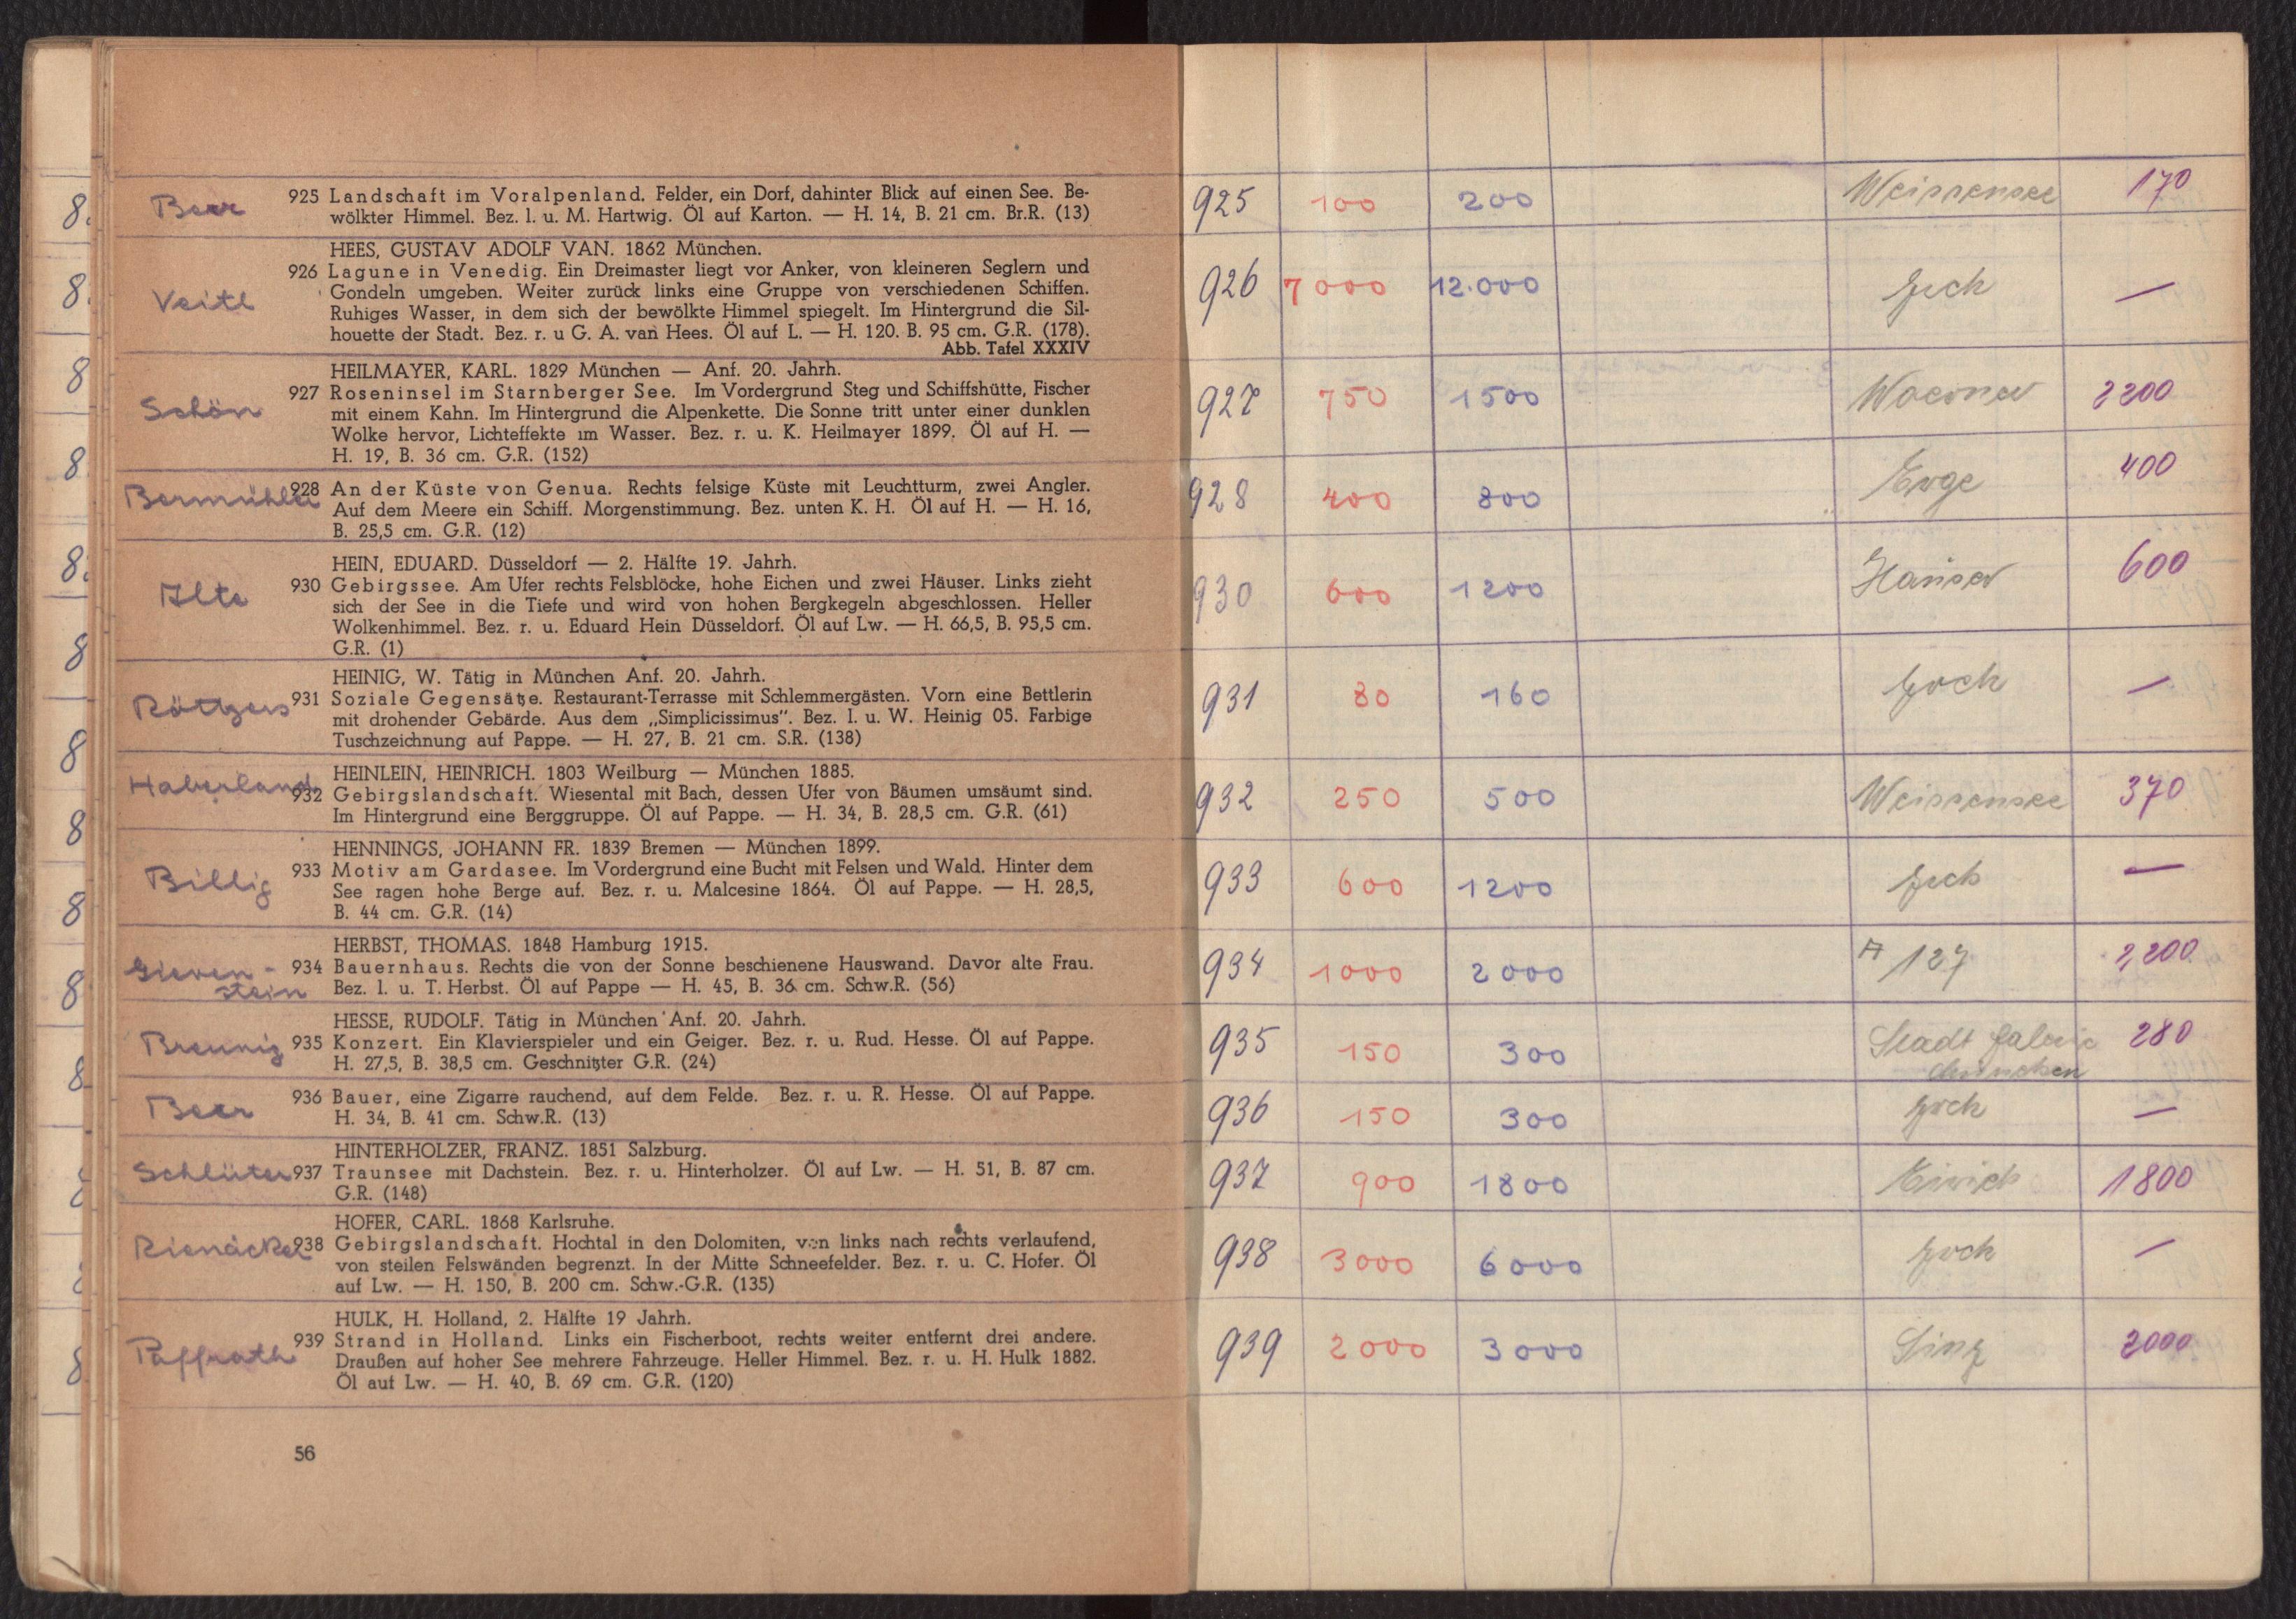 Beer
925 Landschaft im Voralpenland. Felder, ein Dorf, dahinter Blick auf einen See. Be-
wölkter Himmel. Bez. l. u. M. Hartwig. Öl auf Karton. — H. 14, B. 21 cm. Br.R. (13)
HEES, GUSTAV ADOLF VAN. 1862 München.
Veitl
926 Lagune in Venedig. Ein Dreimaster liegt vor Anker, von kleineren Seglern und
Gondeln umgeben. Weiter zurück links eine Gruppe von verschiedenen Schiffen.
Ruhiges Wasser, in dem sich der bewölkte Himmel spiegelt. Im Hintergrund die Sil-
houette der Stadt. Bez. r. u G. A. van Hees. Öl auf L. — H. 120. B. 95 cm. G.R. (178).
Abb. Tafel XXXIV
HEILMAYER, KARL. 1829 München — Anf. 20. Jahrh.
Schön
927 Roseninsel im Starnberger See. Im Vordergrund Steg und Schiffshütte, Fischer
mit einem Kahn. Im Hintergrund die Alpenkette. Die Sonne tritt unter einer dunklen
Wolke hervor, Lichteffekte im Wasser. Bez. r. u. K. Heilmayer 1899. Öl auf H. —
H. 19, B. 36 cm. G.R. (152)
Bermühler
928 An der Küste von Genua. Rechts felsige Küste mit Leuchtturm, zwei Angler.
Auf dem Meere ein Schiff. Morgenstimmung. Bez. unten K. H. Öl auf H. — H. 16,
B. 25,5 cm. G.R. (12)
HEIN, EDUARD. Düsseldorf — 2. Hälfte 19. Jahrh.
930 Gebirgssee. Am Ufer rechts Felsblöcke, hohe Eichen und zwei Häuser. Links zieht
sich der See in die Tiefe und wird von hohen Bergkegeln abgeschlossen. Heller
Wolkenhimmel. Bez. r. u. Eduard Hein Düsseldorf. Öl auf Lw. — H. 66,5, B. 95,5 cm.
G.R. (1)
HEINIG, W. Tätig in München Anf. 20. Jahrh.
Röttgers
931 Soziale Gegensätze. Restaurant-Terrasse mit Schlemmergästen. Vorn eine Bettlerin
mit drohender Gebärde. Aus dem „Simplicissimus“. Bez. I. u. W. Heinig 05. Farbige
Tuschzeichnung auf Pappe. — H. 27, B. 21 cm. S.R. (138)
Haberland
HEINLEIN, HEINRICH. 1803 Weilburg — München 1885.
932 Gebirgslandschaft. Wiesental mit Bach, dessen Ufer von Bäumen umsäumt sind.
Im Hintergrund eine Berggruppe. Öl auf Pappe. — H. 34, B. 28,5 cm. G.R. (61)
HENNINGS, JOHANN FR. 1839 Bremen — München 1899.
Billig
933 Motiv am Gardasee. Im Vordergrund eine Bucht mit Felsen und Wald. Hinter dem
See ragen hohe Berge auf. Bez. r. u. Malcesine 1864. Öl auf Pappe. — H. 28,5,
B. 44 cm. G.R. (14)
HERBST, THOMAS. 1848 Hamburg 1915.
Gieven-
stein
934 Bauernhaus. Rechts die von der Sonne beschienene Hauswand. Davor alte Frau.
Bez. l. u. T. Herbst. Öl auf Pappe — H. 45, B. 36 cm. Schw.R. (56)
HESSE, RUDOLF. Tätig in München Anf. 20. Jahrh.
Brennig
935 Konzert. Ein Klavierspieler und ein Geiger. Bez. r. u. Rud. Hesse. Öl auf Pappe.
H. 27,5, B. 38,5 cm. Geschnitzter G.R. (24)
Beer
936 Bauer, eine Zigarre rauchend, auf dem Felde. Bez. r. u. R. Hesse. Öl auf Pappe.
H. 34, B. 41 cm. Schw.R. (13)
HINTERHOLZER, FRANZ. 1851 Salzburg.
Schlüter
937 Traunsee mit Dachstein. Bez. r. u. Hinterholzer. Öl auf Lw. — H. 51, B. 87 cm.
G.R. (148)
HOFER, CARL. 1868 Karlsruhe.
Rienäcker
938 Gebirgslandschaft. Hochtal in den Dolomiten, von links nach rechts verlaufend,
von steilen Felswänden begrenzt. In der Mitte Schneefelder. Bez. r. u. C. Hofer. Öl
auf Lw. — H. 150, B. 200 cm. Schw.-G.R. (135)
HULK, H. Holland, 2. Hälfte 19 Jahrh.
Paffrath
939 Strand in Holland. Links ein Fischerboot, rechts weiter entfernt drei andere.
Draußen auf hoher See mehrere Fahrzeuge. Heller Himmel. Bez. r. u. H. Hulk 1882.
Öl auf Lw. — H. 40, B. 69 cm. G.R. (120)
56
925 100 200 Weissensee 170
926 7000 12.000 —
927 750 1500 2200
928 400 800 400
930 600 1200 600
931 80 160 —
932 250 500 Weissensee 370
933 600 1200 —
934 1000 2000 127 2,200
935 150 300 Stadt Galerie 280
München
936 150 300 —
937 900 1800 1800
938 3000 6000 —
939 2000 3000 Linz 2000